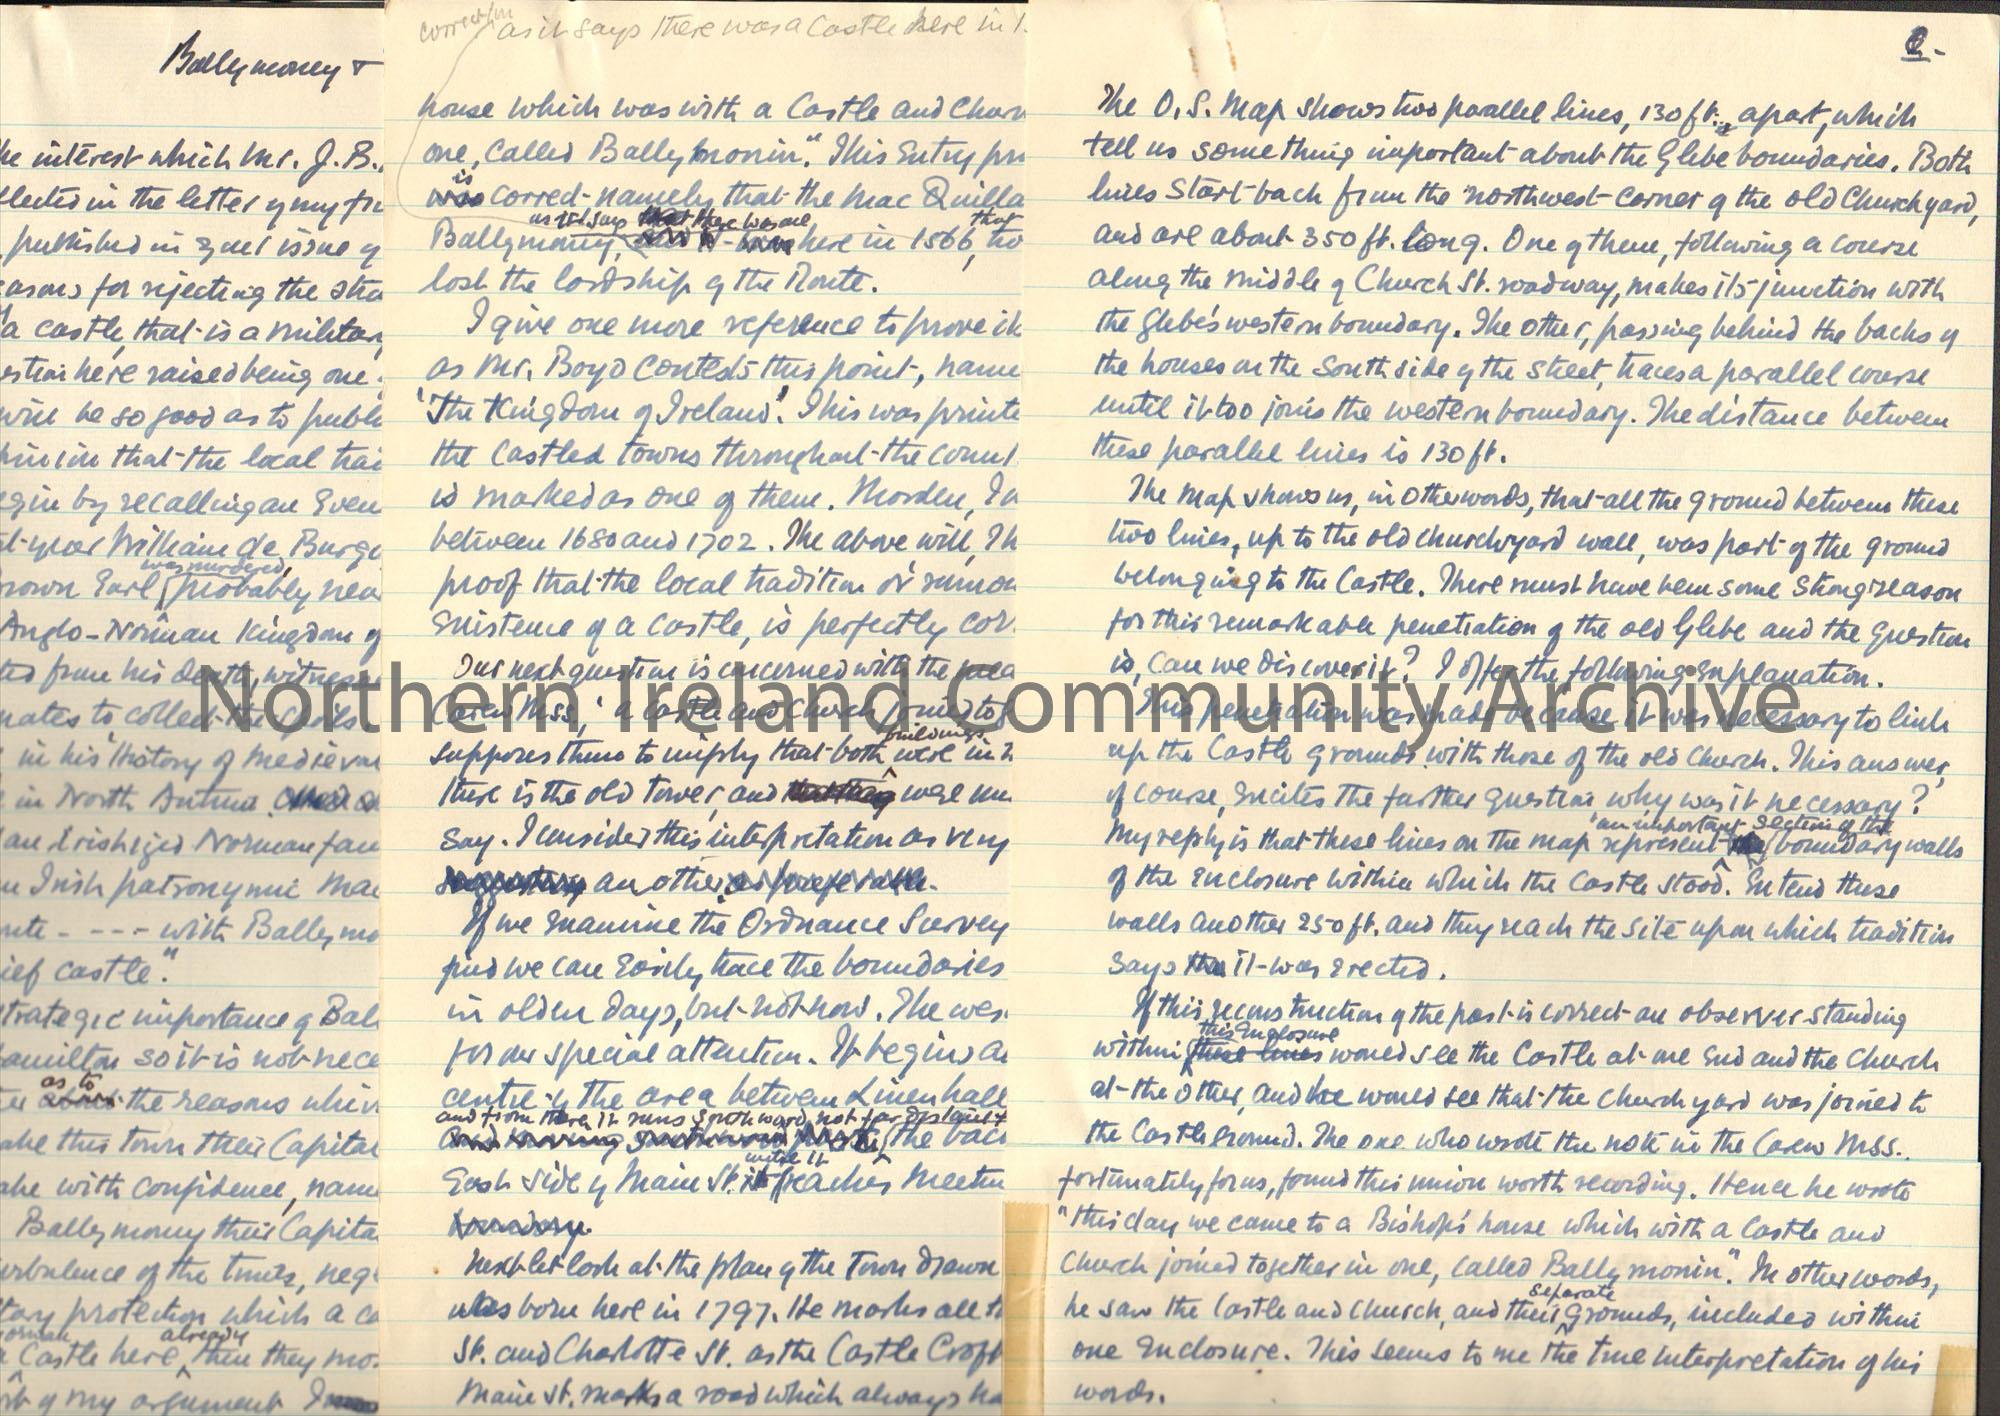 Ballymoney &
the interest which Mr. J. B.
flected in the letter of my
published in your issue of
for rejecting the
a castle, that is a
here raised being one
will be so good as to
in that the local
by recalling an
year William de
was murdered,
Earl probably
Anglo-Norman Kingdom of
from his death,
to collect the
in his 'History of
in North Antrim.
an Irishized Norman
Irish patronymic Mac
- --- with
castle."
importance of
Hamilton so it is not
as to
the reasons
this town their Capital
with confidence,
Ballymoney their
of the times,
protection which a
already
Castle here, then they
of my argument I
correction as it says there was a Castle here in
house which was with a Castle and
one, called Ballymonin." This Entry
is
correct - namely that the Mac
as it says there was one that
Ballymoney, here in 1566,
lost the lordship of the Route.
I give one more reference to prove
as Mr. Boyd contests this point,
'The Kingdom of Ireland'. This was
the Castled towns throughout the
is marked as one of them. Morden,
between 1680 and 1702. The above will,
proof that the local tradition or
Existence of a Castle, is perfectly
Our next question is concerned with the
Carew MSS, 'a castle and church joined
buildings
supposes them to imply that both were in
there is the old tower, and were
say. I consider this interpretation as very
another
If we Examine the Ordnance Survey
find we can Easily trace the boundaries
in olden days, but not now. The
for our special attention. It begins
centre of the area between Linenhall
and from there it runs southward, not far distant
the
until it
East side of Main St. reaches
Next let look at the plan of the Town drawn
was born here in 1797. He marks all
St. and Charlotte St. as the Castle Croft
Main St. marks a road which always
2-
The O.S. Map shows two parallel lines, 130 ft. apart, which
tell us something important about the Glebe boundaries. Both
lines Start back from the northwest corner of the old Churchyard,
and are about 350 ft. long. One of them, following a course
along the middle of Church St. roadway, makes its junction with
the Glebe's western boundary. The other, passing behind the backs of
the houses on the South side of the street, traces a parallel course
until it too joins the western boundary. The distance between
these parallel lines is 130 ft.
The Map shows us, in other words, that all the ground between these
two lines, up to the old churchyard wall, was part of the ground
belonging to the Castle. There must have been some strong reason
for this remarkable penetration of the old Glebe and the question
is, Can we discover it? I offer the following Explanation.
This penetration was made because it was necessary to link
up the Castle grounds with those of the old Church. This answer,
of course, Excites the further question why was it necessary?
an important section of the
My reply is that these lines on the map represent boundary walls
of the Enclosure within which the Castle stood. Extend these
walls another 250 ft. and they reach the site upon which tradition
says it was Erected.
If this reconstruction of the past is correct an observer standing
this Enclosure
within these lines would see the Castle at one End and the Church
at the other, and he would see that the churchyard was joined to
the Castle Ground. The one who wrote the note in the Carew MSS.
fortunately for us, found this union worth recording. Hence he wrote
"this day we came to a Bishop's house which with a Castle and
Church joined together in one, called Ballymonin". In other words,
separate
he saw the Castle and Church, and their grounds, included within
one Enclosure. This seems to me the true interpretation of his
words.
Northern Ireland Community Archive